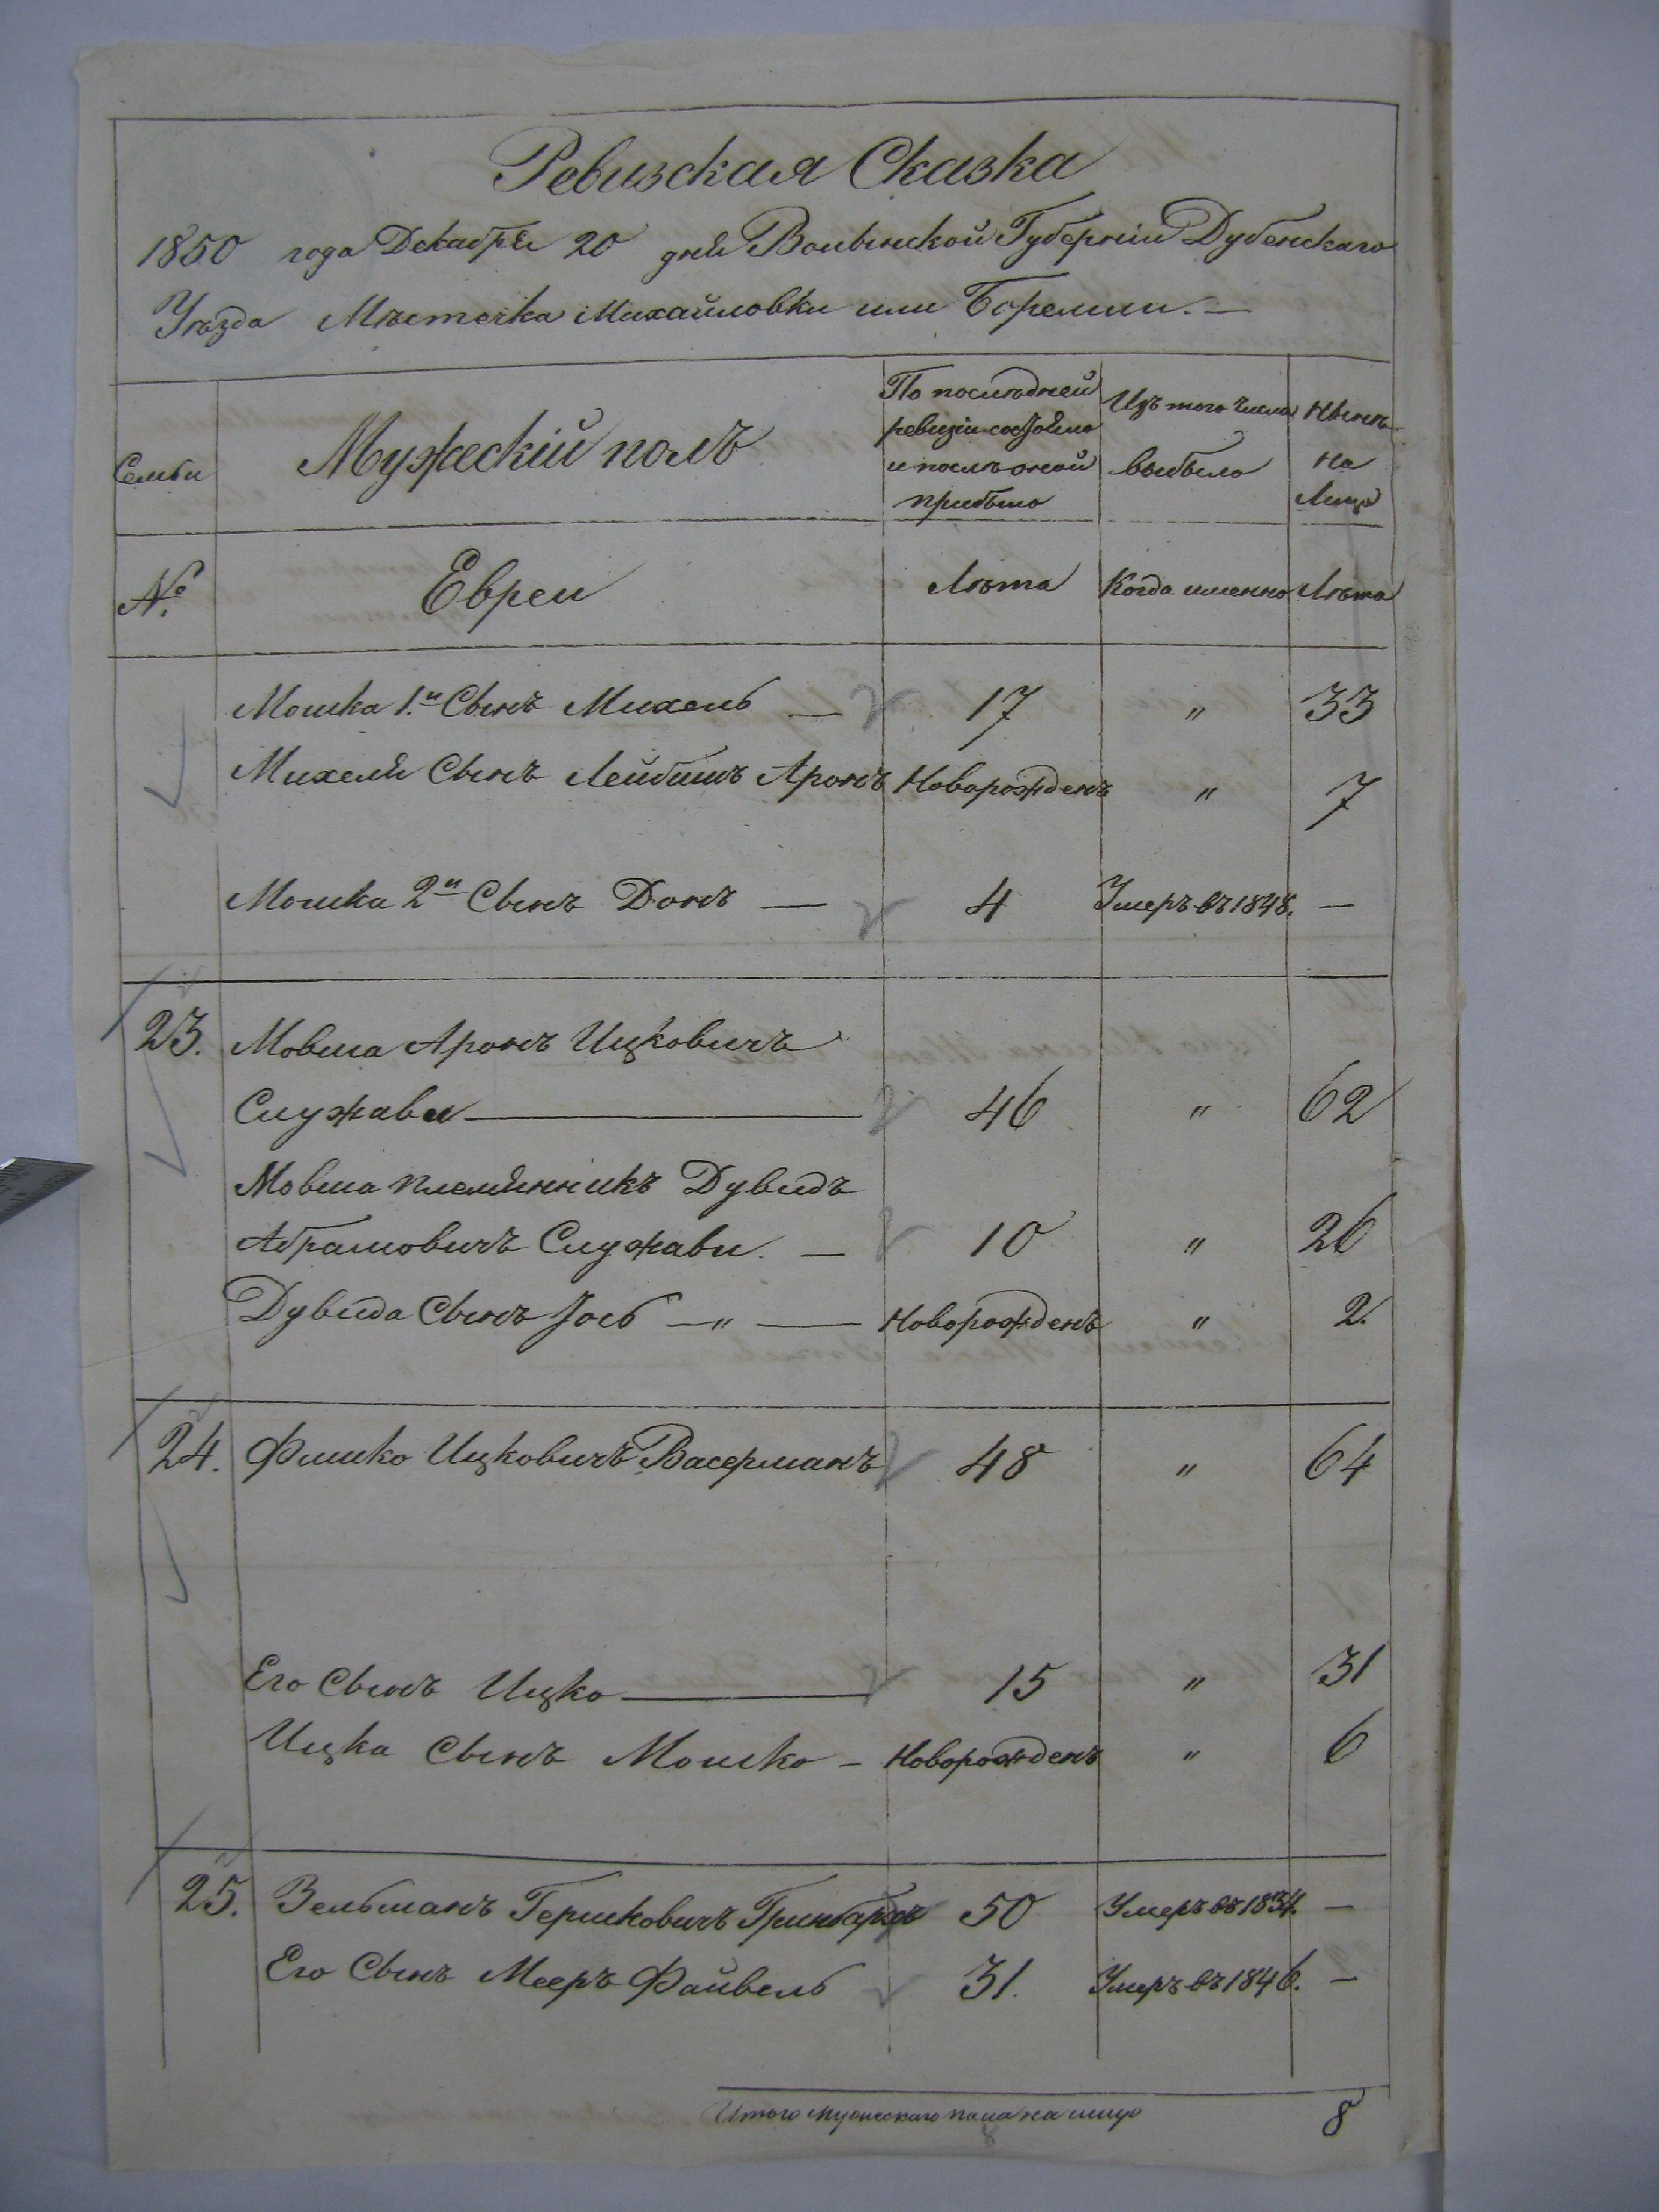 Ревизская Сказка
1850 года Декабря 20 дня Волынской Губерніи Дубенскаго
Уѣзда Мѣстечка Михайловки или Боремли. —
Семьи
Мужескій полъ
По послѣдней ревизіи состояло и послѣ оной прибыло
Изъ того числа выбыло
Нынѣ на Лицо
№
Евреи
Лѣта
Когда именно
Лѣта
Мошка 1.й Сынъ Михель — 17 " 33
Михеля Сынъ Лейбишъ Аронъ Новорожденъ " 7
Мошка 2й Сынъ Донъ — 4 Умеръ въ 1848. —
23. Мовша Аронъ Ицковичъ
Служави — 46 " 62
Мовша племянникъ Дувидъ
Абрамовичъ Служави. — 10 " 26
Дувида Сынъ Іось — " — Новорожденъ " 2.
24. Фишко Ицковичъ Васерманъ 48 " 64
Его Сынъ Ицко — 15 " 31
Ицка Сынъ Мошко — Новорожденъ " 6
25. Зельманъ Гершковичъ 50 Умеръ въ 1834. —
Его Сынъ Мееръ Файвель 31. Умеръ въ 1846. —
Итого мужескаго пола на лицо 8